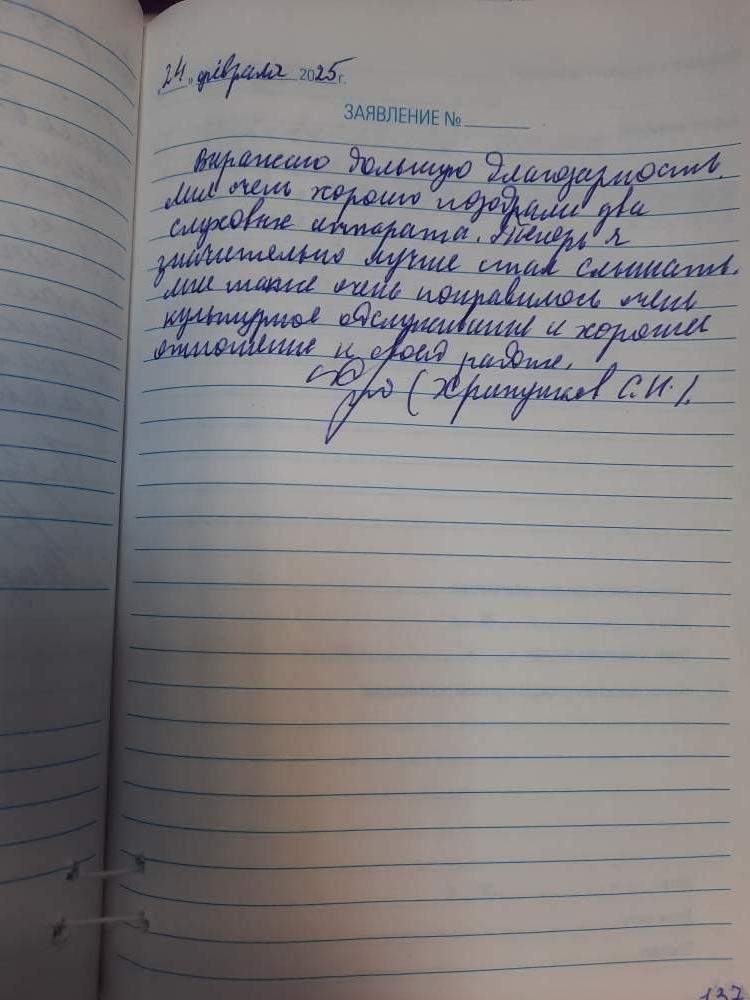 "24" февраля 2025 г.
ЗАЯВЛЕНИЕ №
Выражаю большую благодарность.
Мне очень хорошо подобрали два
слуховые аппарата. Теперь я
значительно лучше стал слышать.
Мне также очень понравилось очень
культурное обслуживание и хорошее
отношение к своей работе.
(Хрипушков С.И.).
137